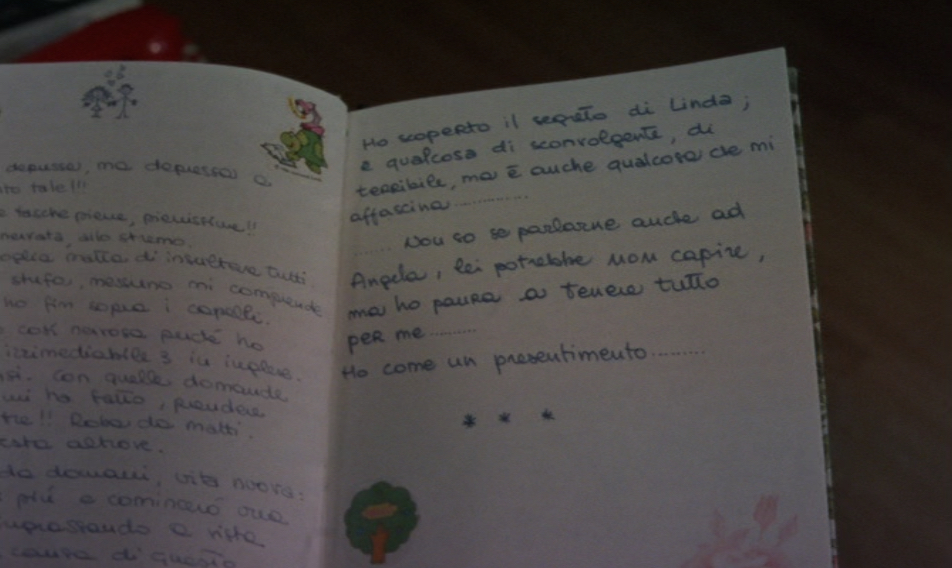 depressa, ma depressa a
to tale!!!
tasche piene, pienissime!!
nervata, allo stremo.
oglia matta di insultare tutti.
stufa, nessuno mi comprende
ho fin sopra i capelli.
così nervosa perché ho
irrimediabile 3 in inglese.
si. Con quelle domande
mi ha fatto, prendere
tre!! Roba da matti.
esta altrove.
da domani, vita nuova:
più e comincerò una
ingrassando a vista
causa di questo
Ho scoperto il segreto di Linda;
è qualcosa di sconvolgente, di
terribile, ma è anche qualcosa che mi
affascina ..............
...... Non so se parlarne anche ad
Angela, lei potrebbe non capire,
ma ho paura a tenere tutto
per me .........
Ho come un presentimento .........
* * *